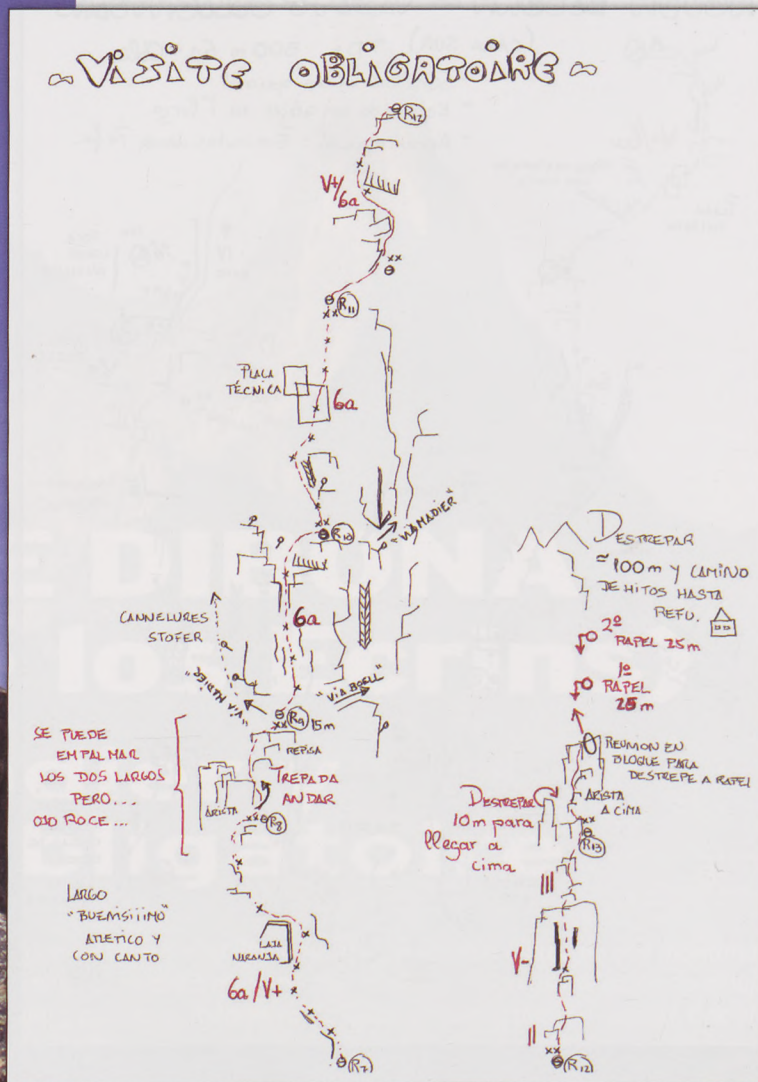 ~ VISITE OBLIGATOIRE ~
R12
V+/6a
R11
PLACA
TÉCNICA
6a
R10
"VIA MADIER"
CANNELURES
STOFER
6a
"VIA MADIER"
"VIA BOELL"
R9 15m
SE PUEDE
EMPALMAR
LOS DOS LARGOS
PERO...
OJO ROCE...
REPISA
TREPADA
ANDAR
ARISTA
R8
LARGO
"BUENISIIIMO"
ATLETICO Y
CON CANTO
LAJA
NARANJA
6a/V+
R7
DESTREPAR
≃100m Y CAMINO
DE HITOS HASTA
REFU.
2º
RAPEL 25m
1º
RAPEL
25m
REUNION EN
BLOQUE PARA
DESTREPE A RAPEL
DESTREPAR
10m para
llegar a
cima
ARISTA
A CIMA
R13
III
V-
II
R12